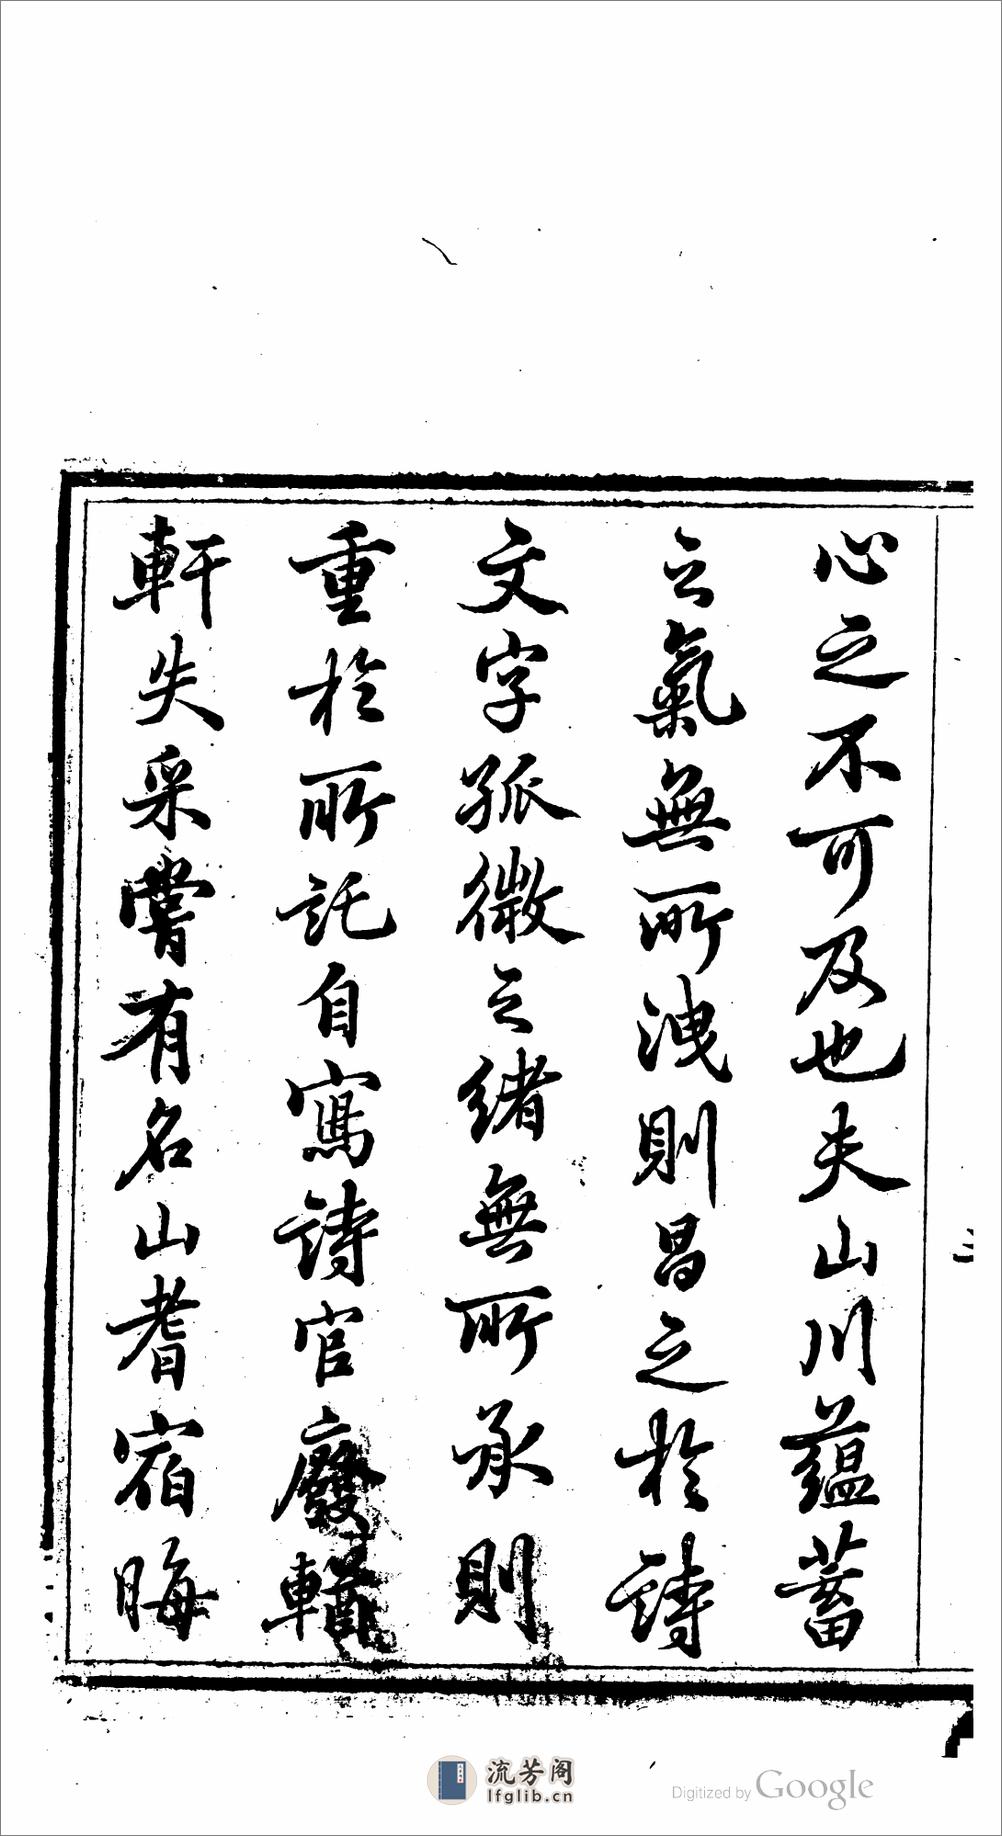 心之不可及也夫山川蘊蓄
之氣無所洩則昌之於詩
文字孤微之緒無所承則
重於所託自寫詩官廢輶
軒失采嘗有名山耆宿晦
二
流芳阁
lfglib.cn
Digitized by Google